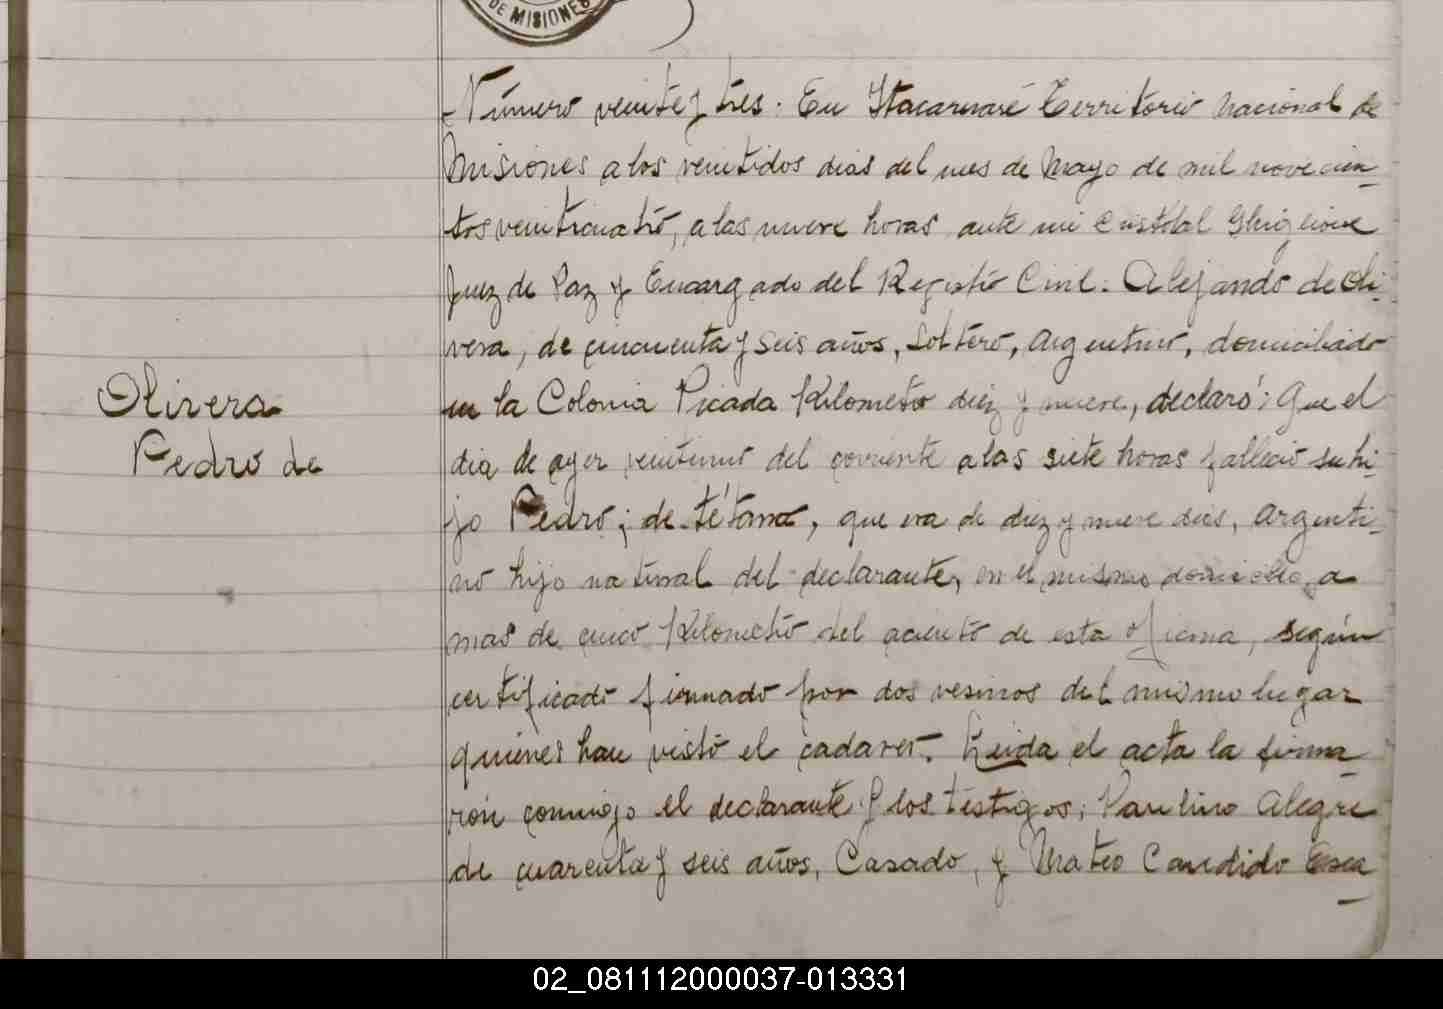 DE MISIONES
Número veinte y tres. En Itacaruaré Territorio Nacional de
Misiones a los veintidos dias del mes de Mayo de mil novecien-
tos veinticuatro, a las nueve horas ante mi Cristobal Ghiglione
Juez de Paz y Encargado del Registro Civil. Alejandro de Oli-
vera, de cincuenta y seis años, soltero, Argentino, domiciliado
en la Colonia Picada Kilometro diez y nueve, declaró: Que el
Olivera
Pedro de
dia de ayer veintiuno del corriente a las siete horas falleció su hi-
jo Pedro; de tétano, que era de diez y nueve dias, Argenti-
no hijo natural del declarante, en el mismo domicilio, a
mas de cinco Kilometro del aciento de esta oficina, según
certificado firmado por dos vesinos del mismo lugar
quienes han visto el cadaver. Leida el acta la firma-
ron conmigo el declarante y los testigos; Paulino Alegre
de cuarenta y seis años, Casado, y Mateo Candido
02_081112000037-013331